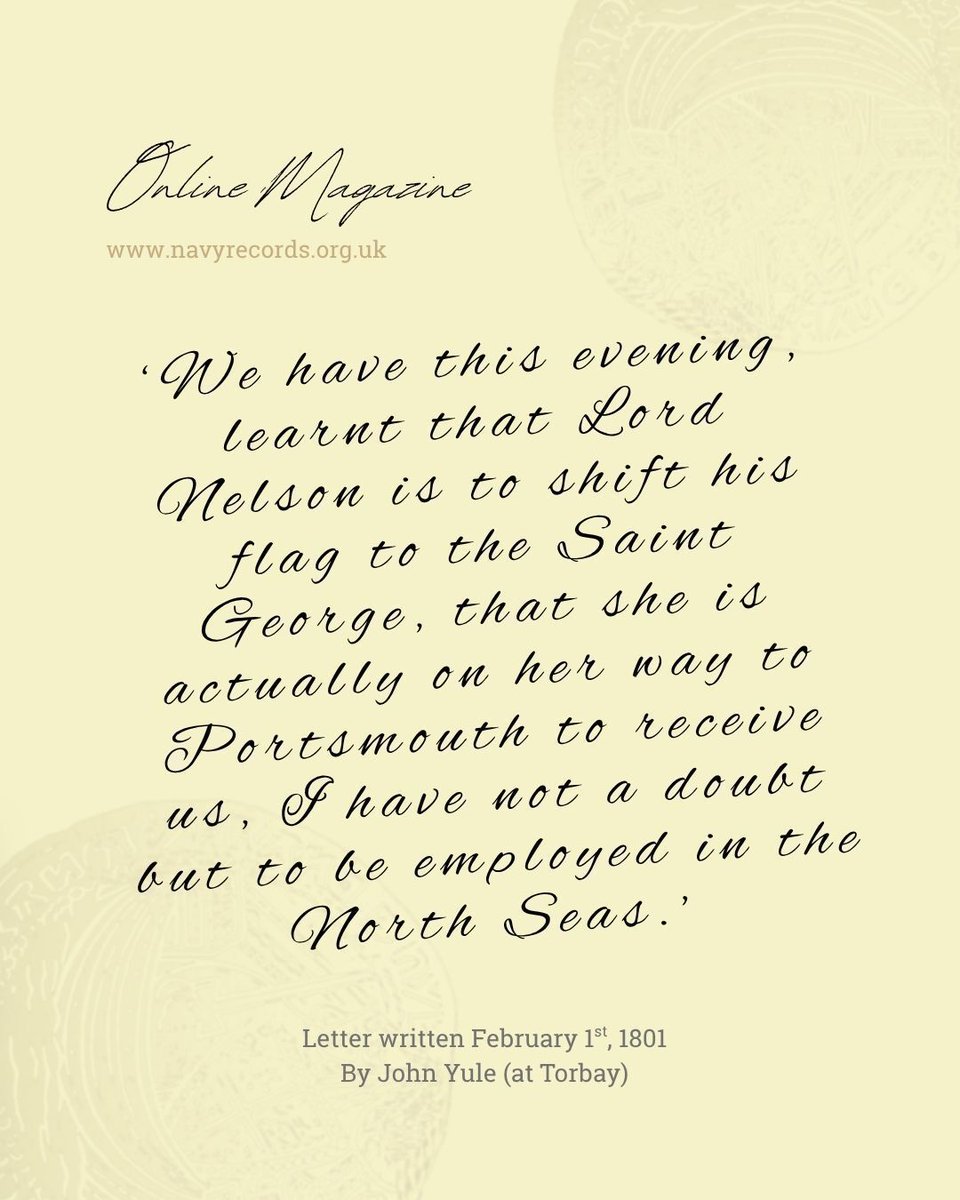 Online Magazine
www.navyrecords.org.uk
‘We have this evening,
learnt that Lord
Nelson is to shift his
flag to the Saint
George, that she is
actually on her way to
Portsmouth to receive
us, I have not a doubt
but to be employed in the
North Seas.’
Letter written February 1st, 1801
By John Yule (at Torbay)